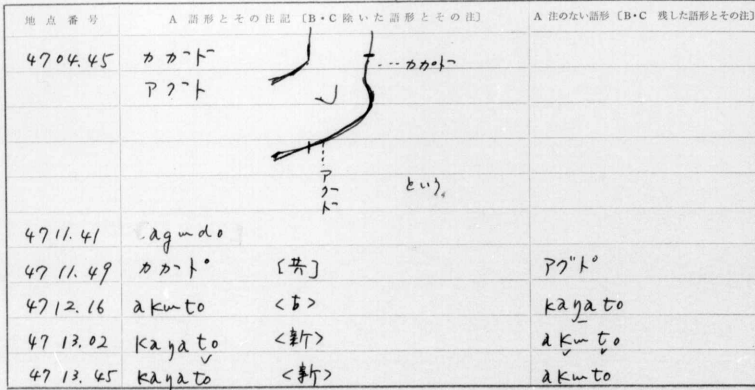 地点番号 A 語形とその注記〔B・C 除いた語形とその注〕 A 注のない語形〔B・C 残した語形とその注〕
4704.45 カカ゜ート
...カカ゜ト
アクート
アクート
という。
4711.41 agɯdo
4711.49 カカート゜ [共] アグド
4712.16 akɯto <古> kaŋato
4713.02 kaŋato <新> akɯto
4713.45 kaŋato <新> akɯto